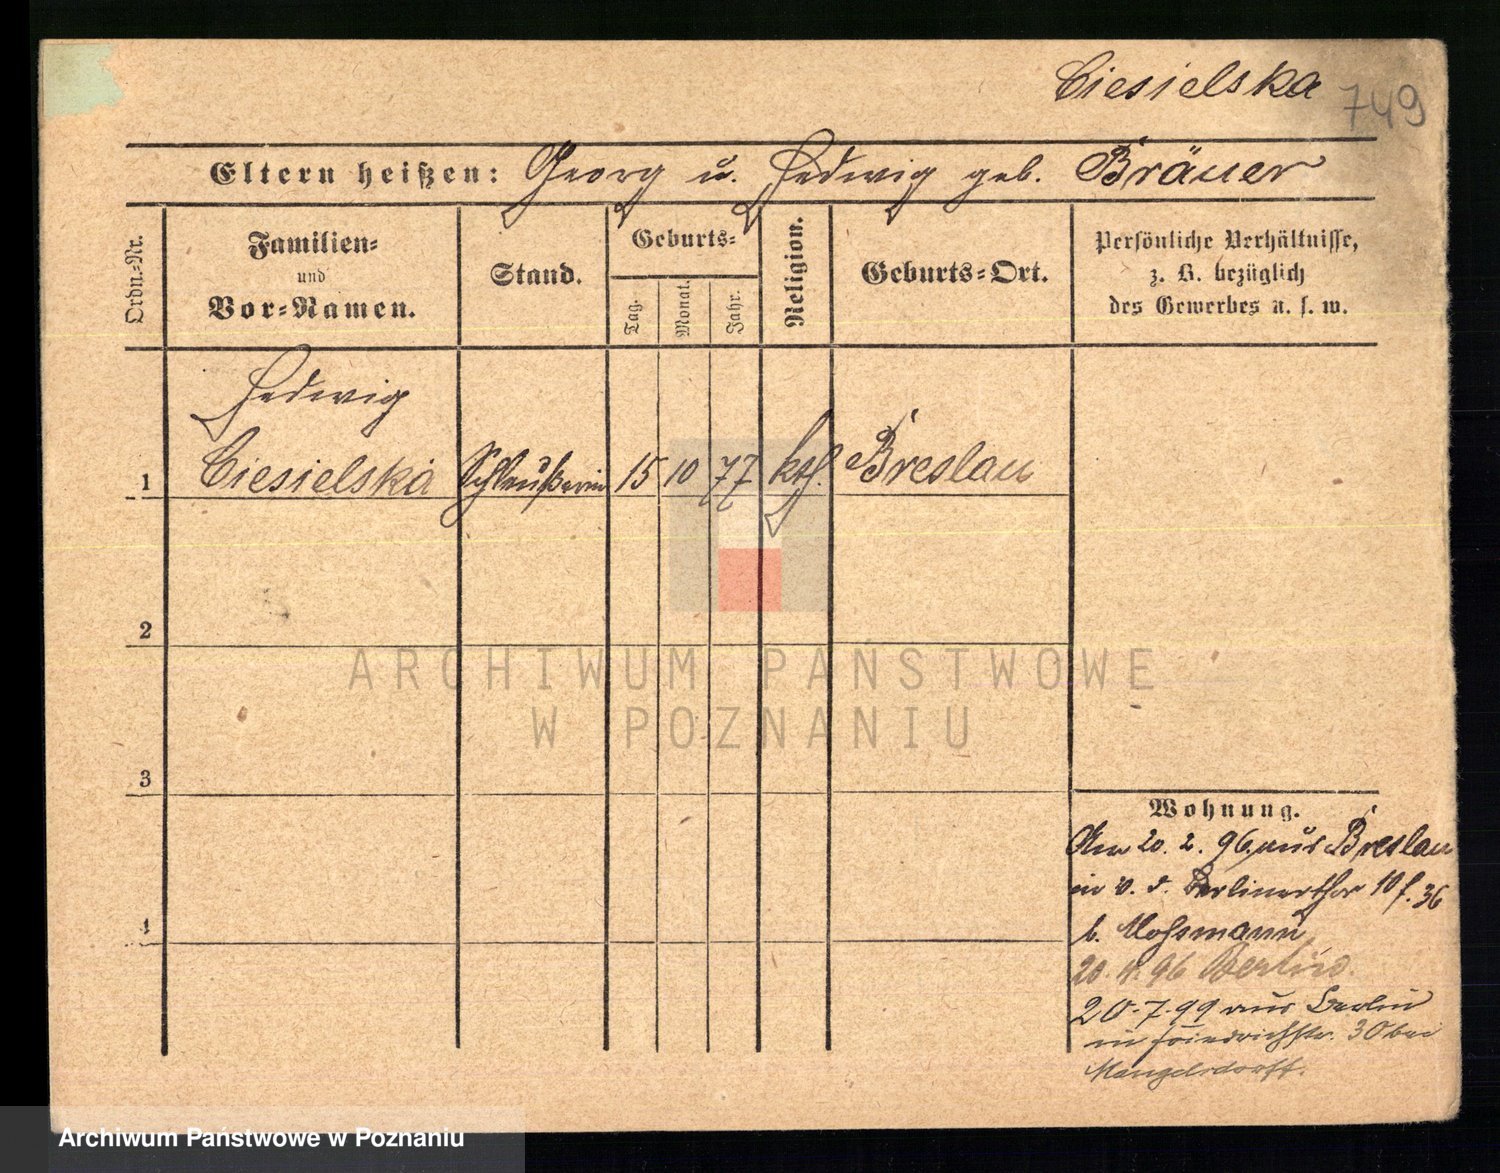 Ciesielska 749
Eltern heißen: Georg u. Hedwig geb. Bräuer
Ordn.-Nr.
Familien-
und
Vor-Namen.
Stand.
Geburts-
Tag.
Monat.
Jahr.
Religion.
Geburts-Ort.
Persönliche Verhältnisse,
z. B. bezüglich
des Gewerbes u. s. w.
Hedwig
1 Ciesielska Schleußerin 15 10 77 kth. Breslau
2
ARCHIWUM PAŃSTWOWE
W POZNANIU
3
Wohnung.
20. 2. 96. aus Breslau
in v. d. Berlinerthor 10
4
b.
20. 4. 96 Berlin
20.7.99 aus Berlin
in Friedrichstr. 30 bei
Mangelsdorff.
Archiwum Państwowe w Poznaniu